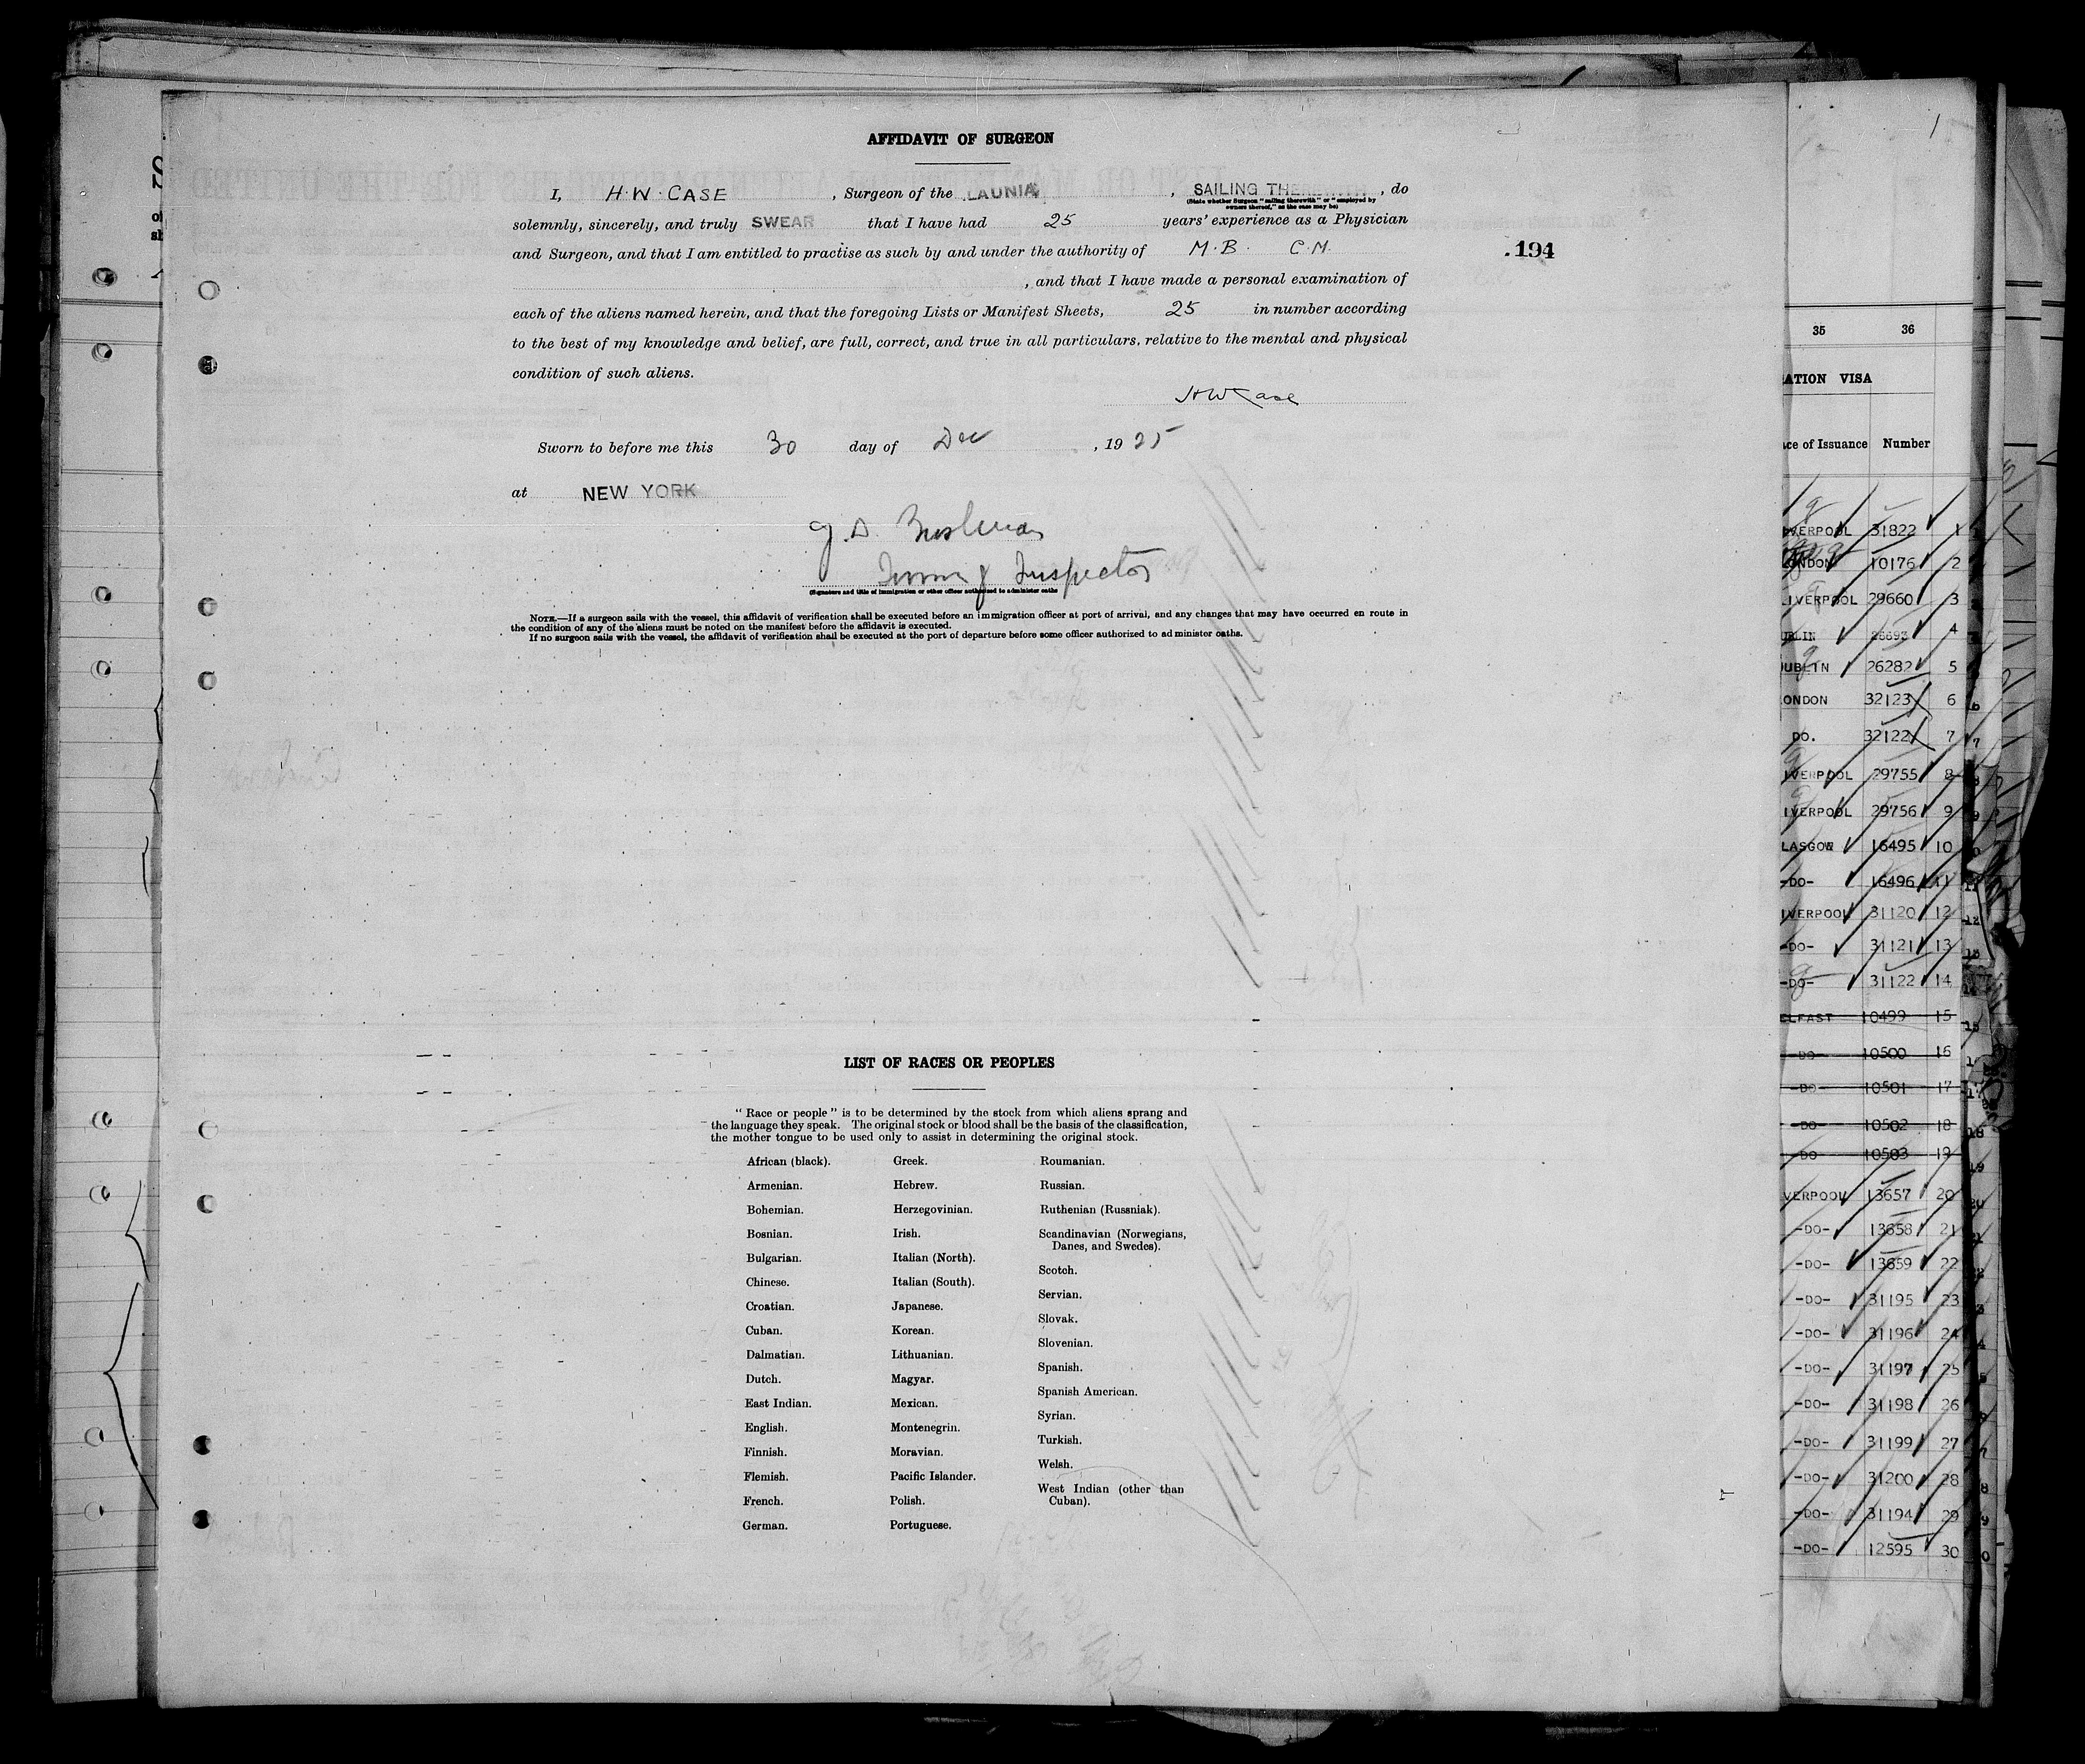 AFFIDAVIT OF SURGEON
I, H. W. CASE, Surgeon of the LAUNIA, SAILING THEREWITH, do
(State whether Surgeon "sailing therewith" or "employed by
owners thereof," as the case may be)
solemnly, sincerely, and truly SWEAR that I have had 25 years' experience as a Physician
and Surgeon, and that I am entitled to practise as such by and under the authority of M.B. C.M.
.194
, and that I have made a personal examination of
each of the aliens named herein, and that the foregoing Lists or Manifest Sheets, 25 in number according
to the best of my knowledge and belief, are full, correct, and true in all particulars, relative to the mental and physical
condition of such aliens.
HW Case
Sworn to before me this 30 day of Dec, 1925
at NEW YORK
Inspector
(Signature and title of immigration or other officer authorized to administer oaths
NOTE.—If a surgeon sails with the vessel, this affidavit of verification shall be executed before an immigration officer at port of arrival, and any changes that may have occurred en route in
the condition of any of the aliens must be noted on the manifest before the affidavit is executed.
If no surgeon sails with the vessel, the affidavit of verification shall be executed at the port of departure before some officer authorized to administer oaths.
LIST OF RACES OR PEOPLES
"Race or people" is to be determined by the stock from which aliens sprang and
the language they speak. The original stock or blood shall be the basis of the classification,
the mother tongue to be used only to assist in determining the original stock.
African (black).
Armenian.
Bohemian.
Bosnian.
Bulgarian.
Chinese.
Croatian.
Cuban.
Dalmatian.
Dutch.
East Indian.
English.
Finnish.
Flemish.
French.
German.
Greek.
Hebrew.
Herzegovinian.
Irish.
Italian (North).
Italian (South).
Japanese.
Korean.
Lithuanian.
Magyar.
Mexican.
Montenegrin.
Moravian.
Pacific Islander.
Polish.
Portuguese.
Roumanian.
Russian.
Ruthenian (Russniak).
Scandinavian (Norwegians,
Danes, and Swedes).
Scotch.
Servian.
Slovak.
Slovenian.
Spanish.
Spanish American.
Syrian.
Turkish.
Welsh.
West Indian (other than
Cuban).
35 36
ATION VISA
ce of Issuance Number
IVERPOOL 31822 1
ONDON 10176 2
LIVERPOOL 29660 3
UBLIN 4
DUBLIN 26282 5
ONDON 32123 6
DO. 32122 7
IVERPOOL 29755 8
IVERPOOL 29756 9
LASGOW 16495 10
-DO- 16496 11
IVERPOOL 31120 12
-DO- 31121 13
-DO- 31122 14
ELFAST 10499 15
-DO- 10500 16
-DO- 10501 17
-DO- 10502 18
-DO- 10503 19
VERPOOL 13657 20
-DO- 13658 21
-DO- 13659 22
-DO- 31195 23
-DO- 31196 24
-DO- 31197 25
-DO- 31198 26
-DO- 31199 27
-DO- 31200 28
-DO- 31194 29
-DO- 12595 30